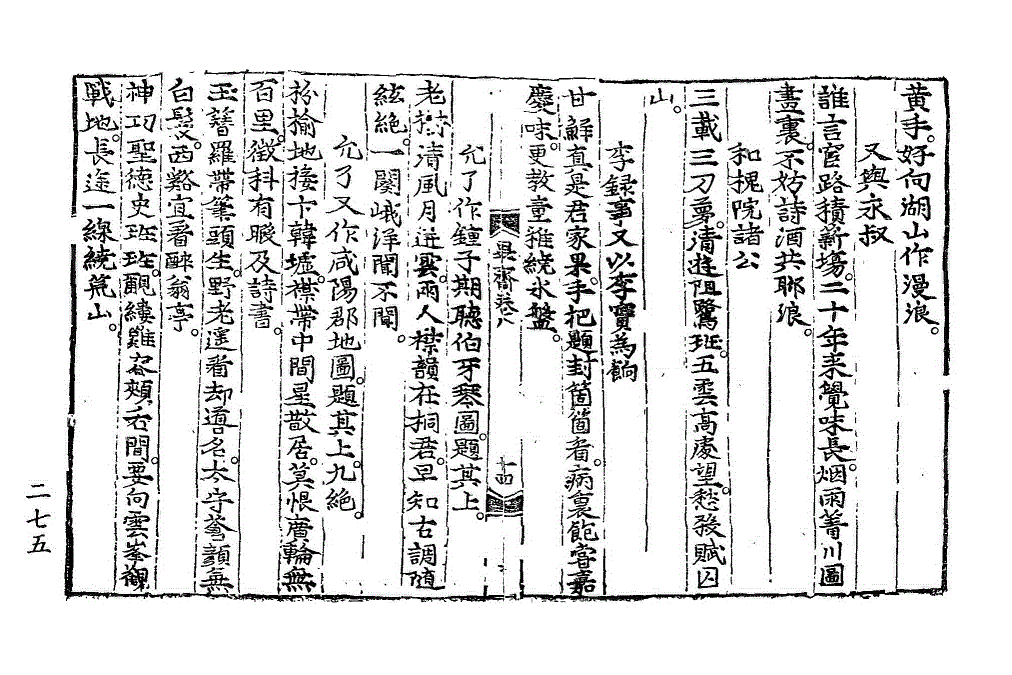 黄手好向湖山作漫浪
又與永叔
誰言宦路積薪塲二十年来覺味長烟雨菁川圖
畫裏不妨詩酒共聊浪
和槐院諸公
三載三刀夢清遊阻鷺班五雲高處望愁殺賦囚
山
李録事又以李寶為餉
甘鮮真是君家果手把題封箇箇看病裏飽嘗嘉
慶味更教童稚繞氷盤
畢齋卷八
十四
允了作鍾子期聽伯牙琴圖題其上
老樹清風月迸雲兩人襟韻在桐君早知古調随
絃絶一闋峨洋聞不聞
允了又作咸陽郡地圖題其上九絶
枌揄地接卞韓墟襟帶中間星散居莫恨廣輪無
百里徴科有暇及詩書
玉簪羅帶筆頭生野老遥看却道名太守蒼顔無
白髮西谿宜着醉翁亭
神功聖徳史班班覼縷難容頰舌間要向雲峯觀
戰地長途一線繞荒山
二七五